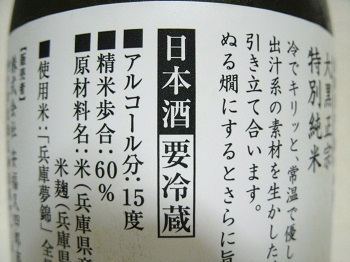 大黒正宗
特別純米
冷でキリッと、常温で優し
出汁系の素材を生かした
引き立て合います。
ぬる燗にするとさらに旨
日本酒 要冷蔵
■アルコール分:15度
■精米歩合:60%
■原材料名:米(兵庫県産
米麹(兵庫県
■使用米:「兵庫夢錦」全
【販売者】
株式会社安福又四郎